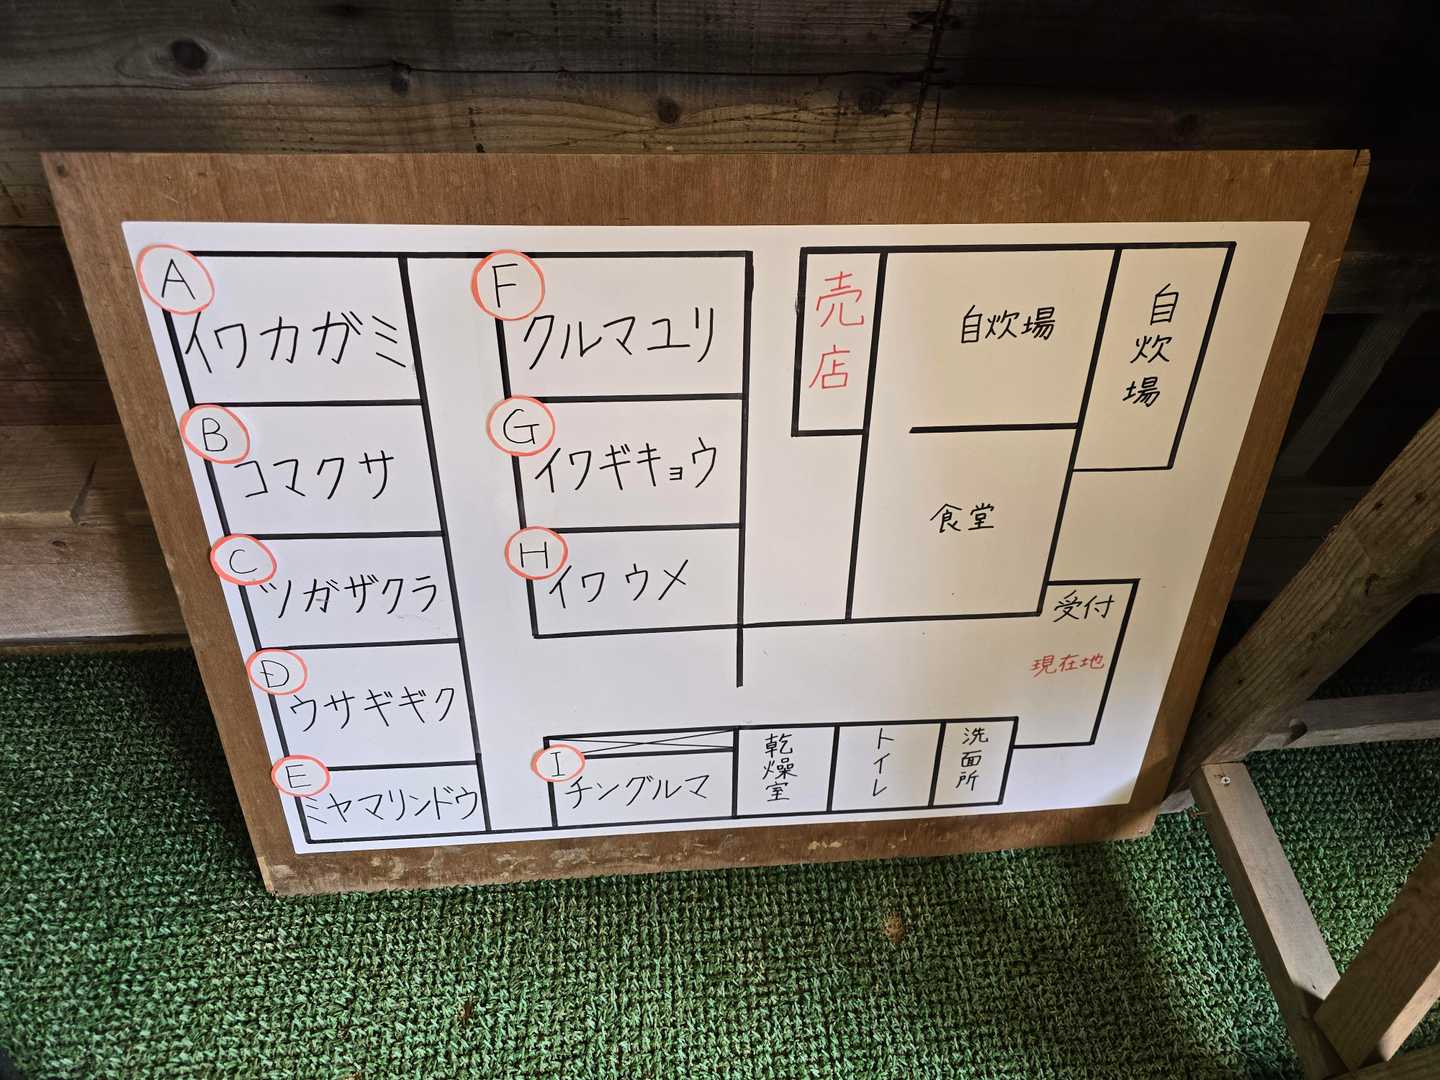 A
イワカガミ
B
コマクサ
C
ツガザクラ
D
ウサギギク
E
ミヤマリンドウ
F
クルマユリ
G
イワギキョウ
H
イワウメ
I
チングルマ
売店
自炊場
自炊場
食堂
受付
現在地
乾燥室
トイレ
洗面所